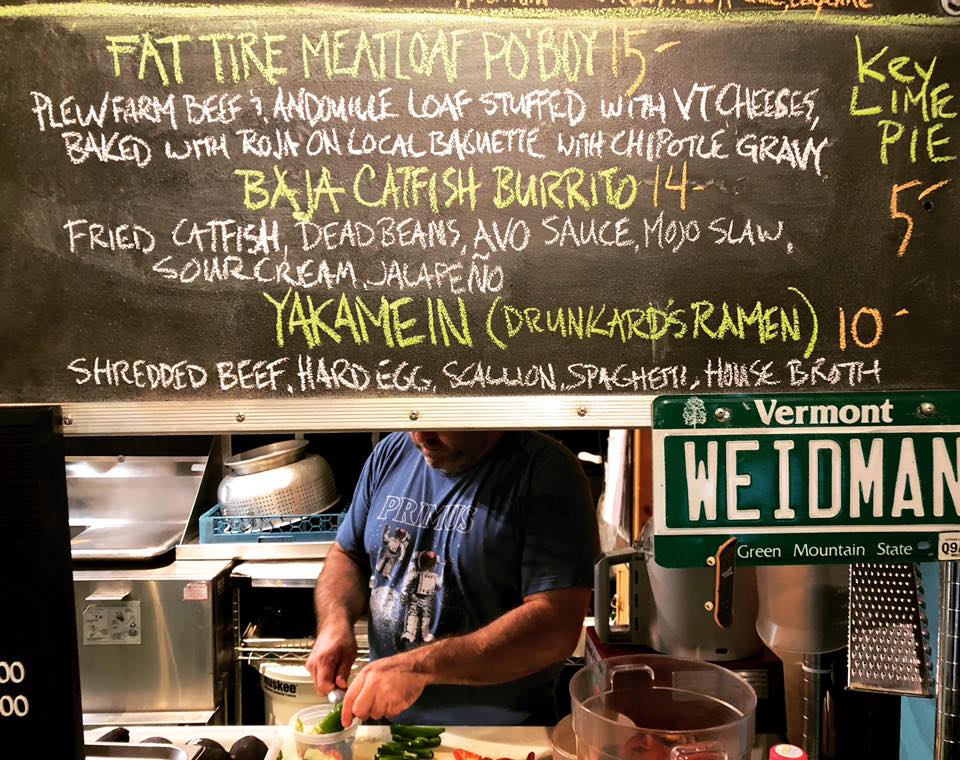 FAT TIRE MEATLOAF PO'BOY 15-
PLEW FARM BEEF & ANDOUILLE LOAF STUFFED WITH VT CHEESES,
BAKED WITH ROJA ON LOCAL BAGUETTE WITH CHIPOTLE GRAVY
BAJA CATFISH BURRITO 14-
FRIED CATFISH, DEAD BEANS, AVO SAUCE, MOJO SLAW,
SOUR CREAM, JALAPEÑO
YAKAMEIN (DRUNKARD'S RAMEN) 10-
SHREDDED BEEF, HARD EGG, SCALLION, SPAGHETTI, HOUSE BROTH
Key
LIME
PIE
5-
Vermont
WEIDMAN
Green Mountain State
PRIMUS
00
00